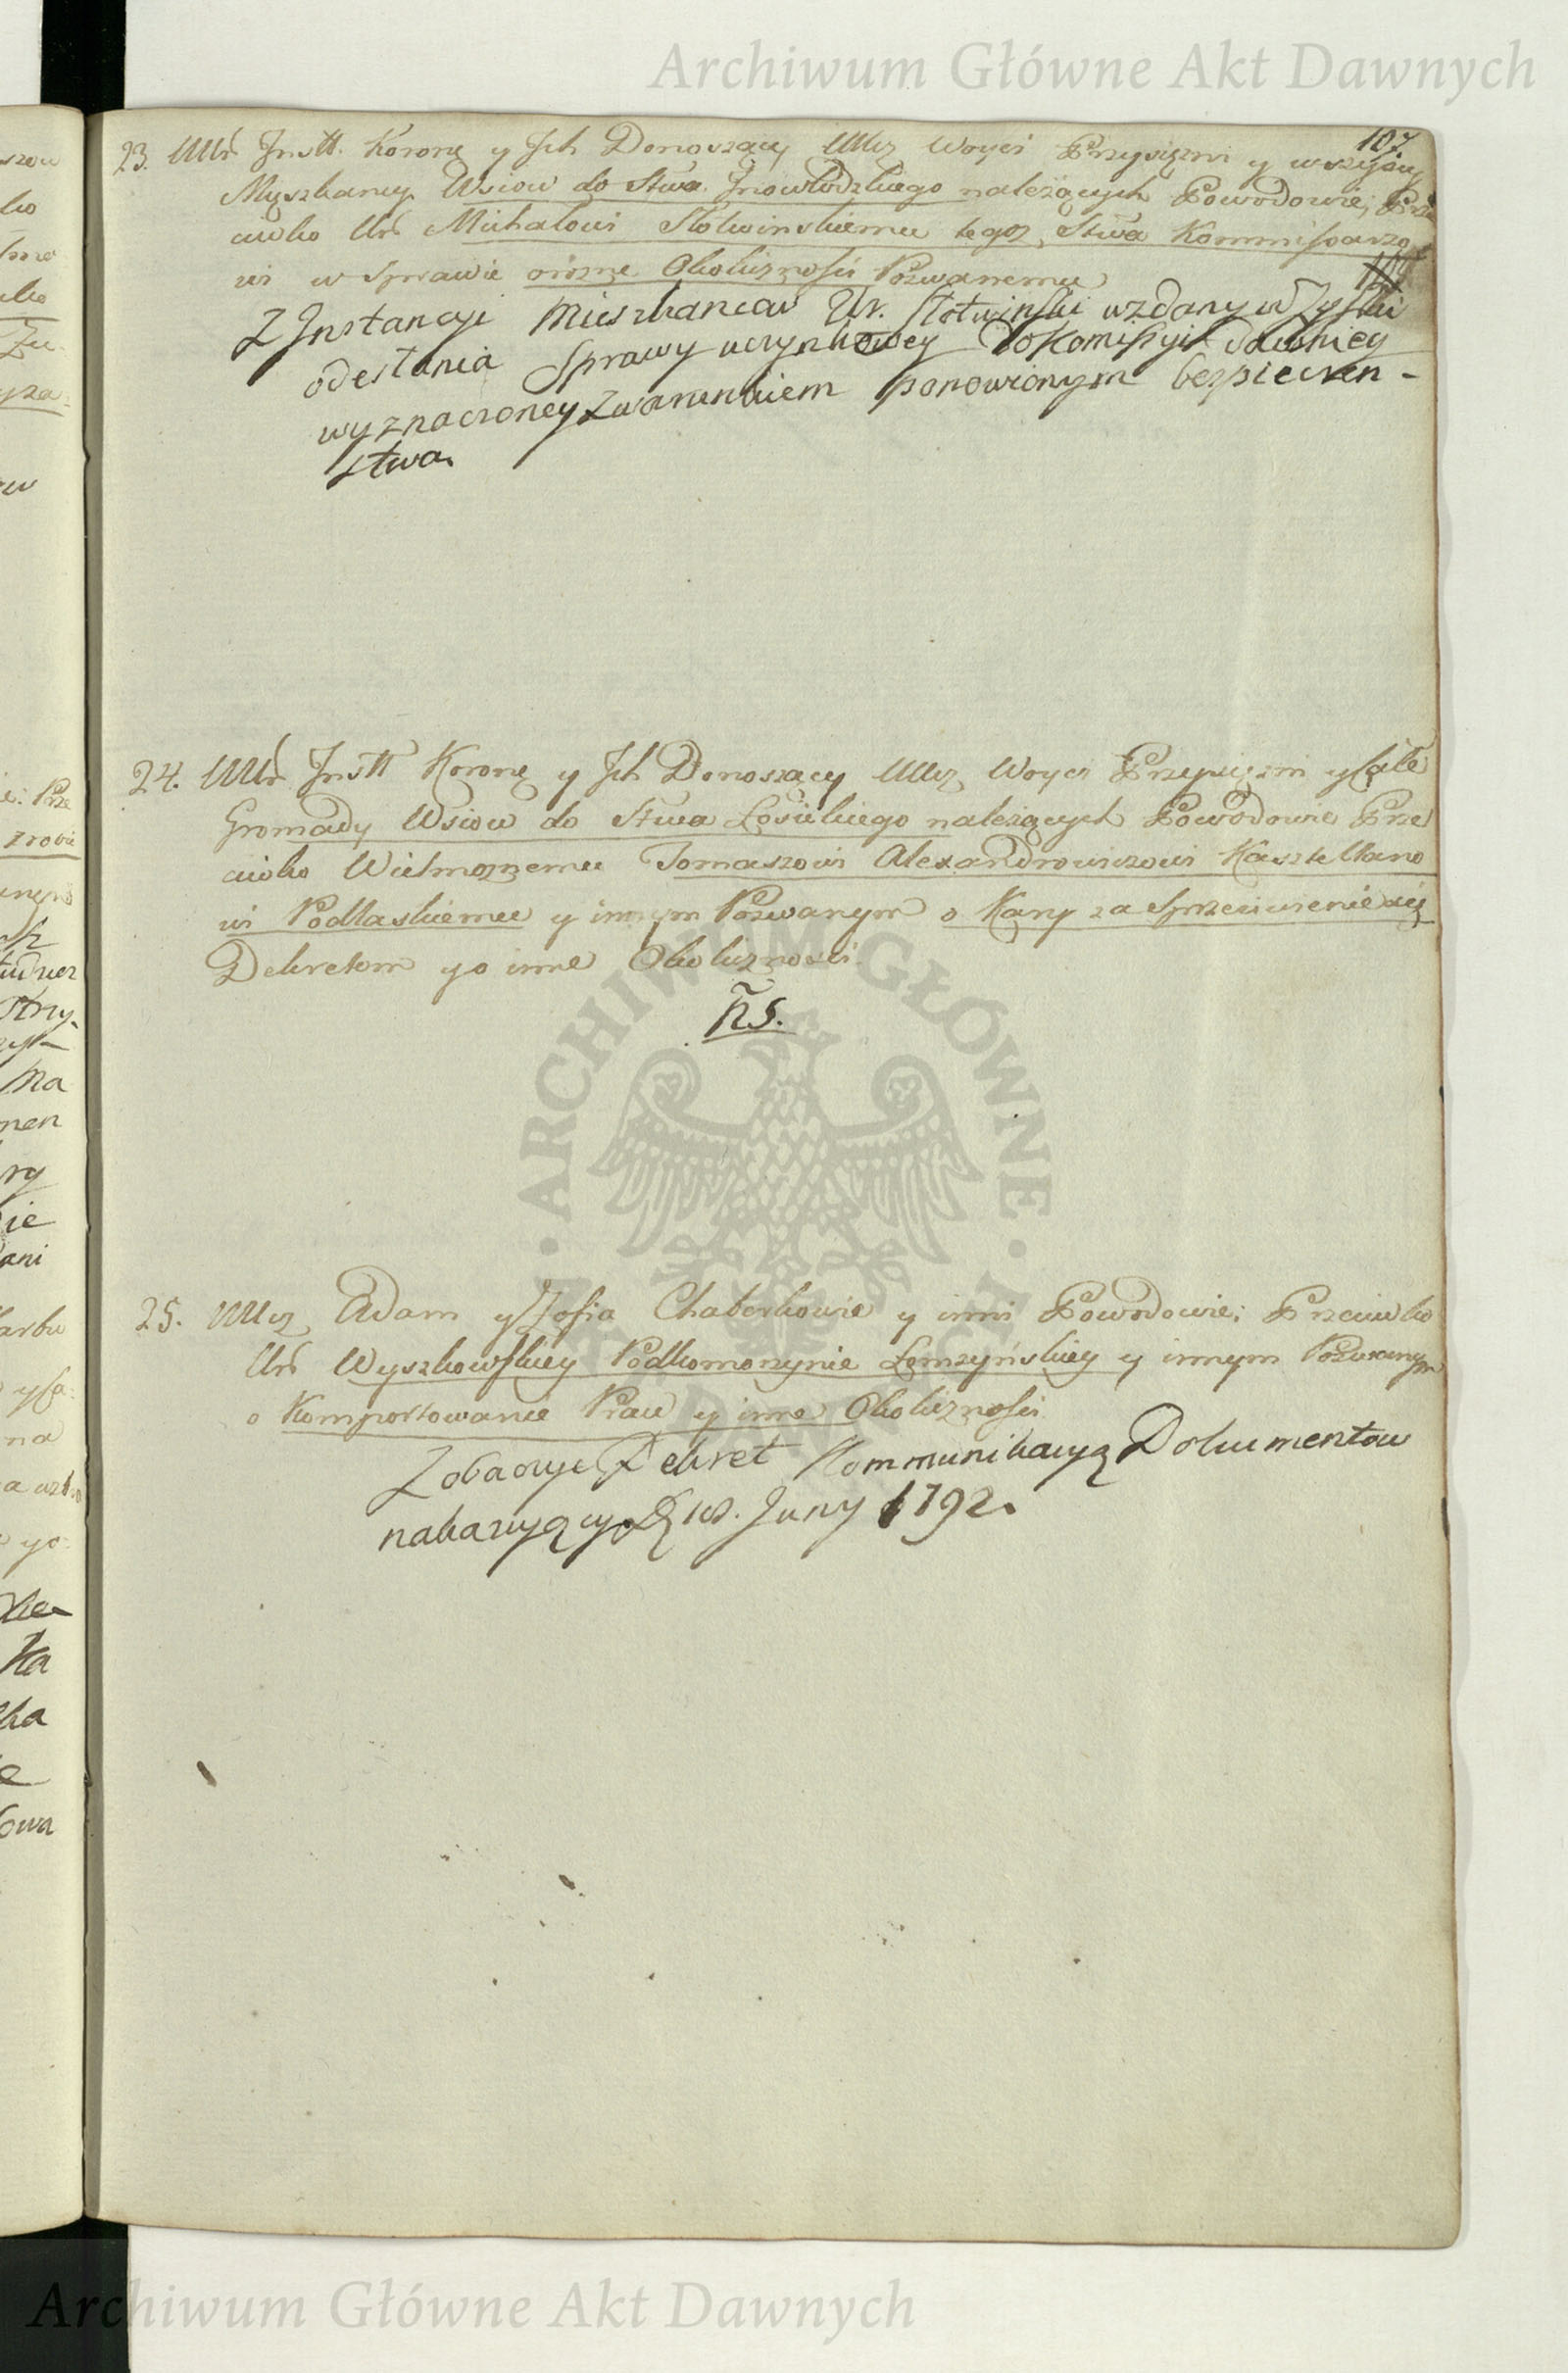 Archiwum Główne Akt Dawnych
107
23. UUr Instt. Koronę y Ich Donoszący UUcz Woyci Przysięzni y wszyscy
Myszkancy Wsiow do Stwa Inowłodzkiego należących Powodowie; Prze
ciwko Ur Michałowi Słotwinskiemu tegoz Stwa Kommissarzo
wi w Sprawie orózne Okoliznosci Pozwanemu
Z Instancyi Mieszkancow Ur. Słotwinski wzdany w Zyski
odesłania Sprawy uczynkowey do Komissyi dawniey
wyznaczoney zwarunkiem ponowionym bezpieczen-
stwa.
24. UUr Instt Koronę y Ich Donoszący UUcz Woyci Przysięzni y Całe
Gromady Wsiow do Stwa Łosickiego należących Powodowie Prze
ciwko Wielmoznemu Tomaszowi Alexandrowiczowi Kasztellano
wi Podlaskiemu y innym Pozwanym o Kary za Sprzeciwienie się
Dekretom y o inne Okoliznosci.
ns.
25. UUcz Adam y Zofia Chaberkowie y inni Powodowie; Przeciwko
Ur Wyszkowskiey Podkomorzynie Łomzyńskiey y innym Pozwanym
o Komportowanie Praw y inne Okoliznosci
Zobaczyc Dekret Kommunikacyą Dokumentow
nakazuący Iuny 1792.
ARCHIWUM GŁÓWNE
Archiwum Główne Akt Dawnych